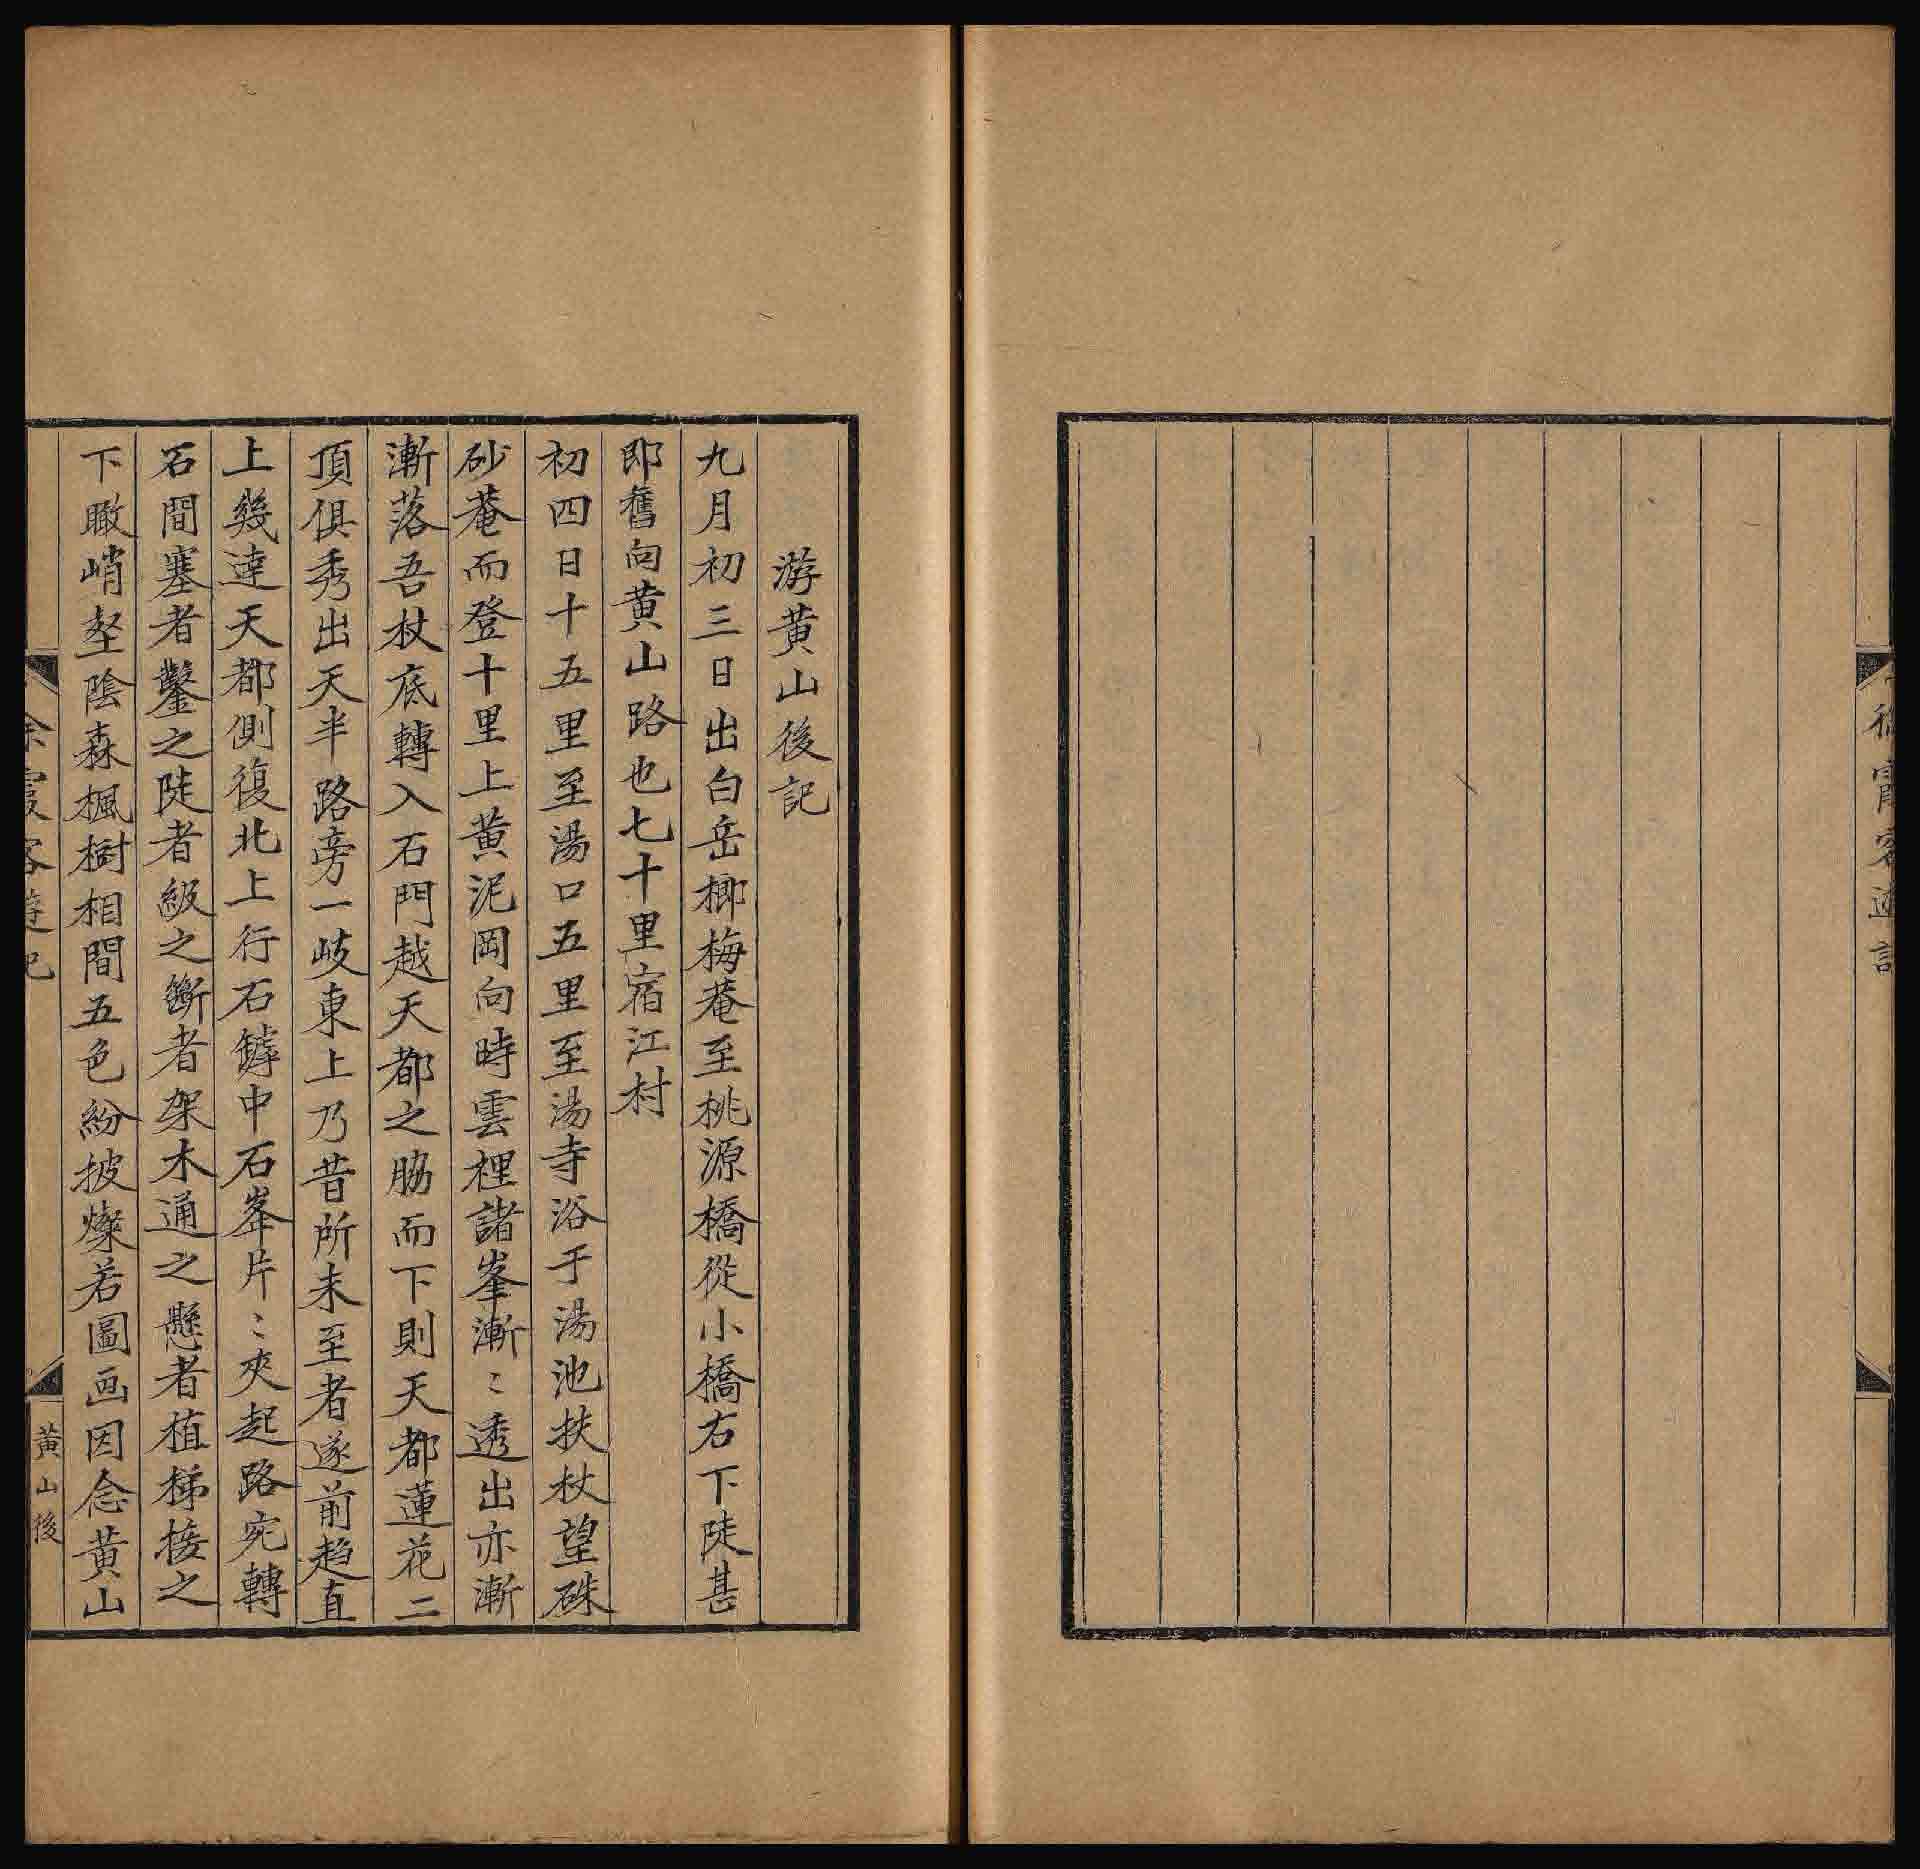 徐霞客遊記
游黄山後記
九月初三日出白岳榔梅菴至桃源橋從小橋右下陡甚
即舊向黄山路也七十里宿江村
初四日十五里至湯口五里至湯寺浴于湯池扶杖望硃
砂菴而登十里上黄泥岡向時雲裡諸峯漸〻透出亦漸
漸落吾杖底轉入石門越天都之脇而下則天都蓮花二
頂俱秀出天半路旁一岐東上乃昔所未至者遂前趋直
上幾達天都側復北上行石罅中石峯片〻夾起路宛轉
石間塞者鑿之陡者級之斷者架木通之懸者植梯接之
下瞰峭壑陰森楓樹相間五色紛披燦若圖画因念黄山
徐霞客遊記
黄山後